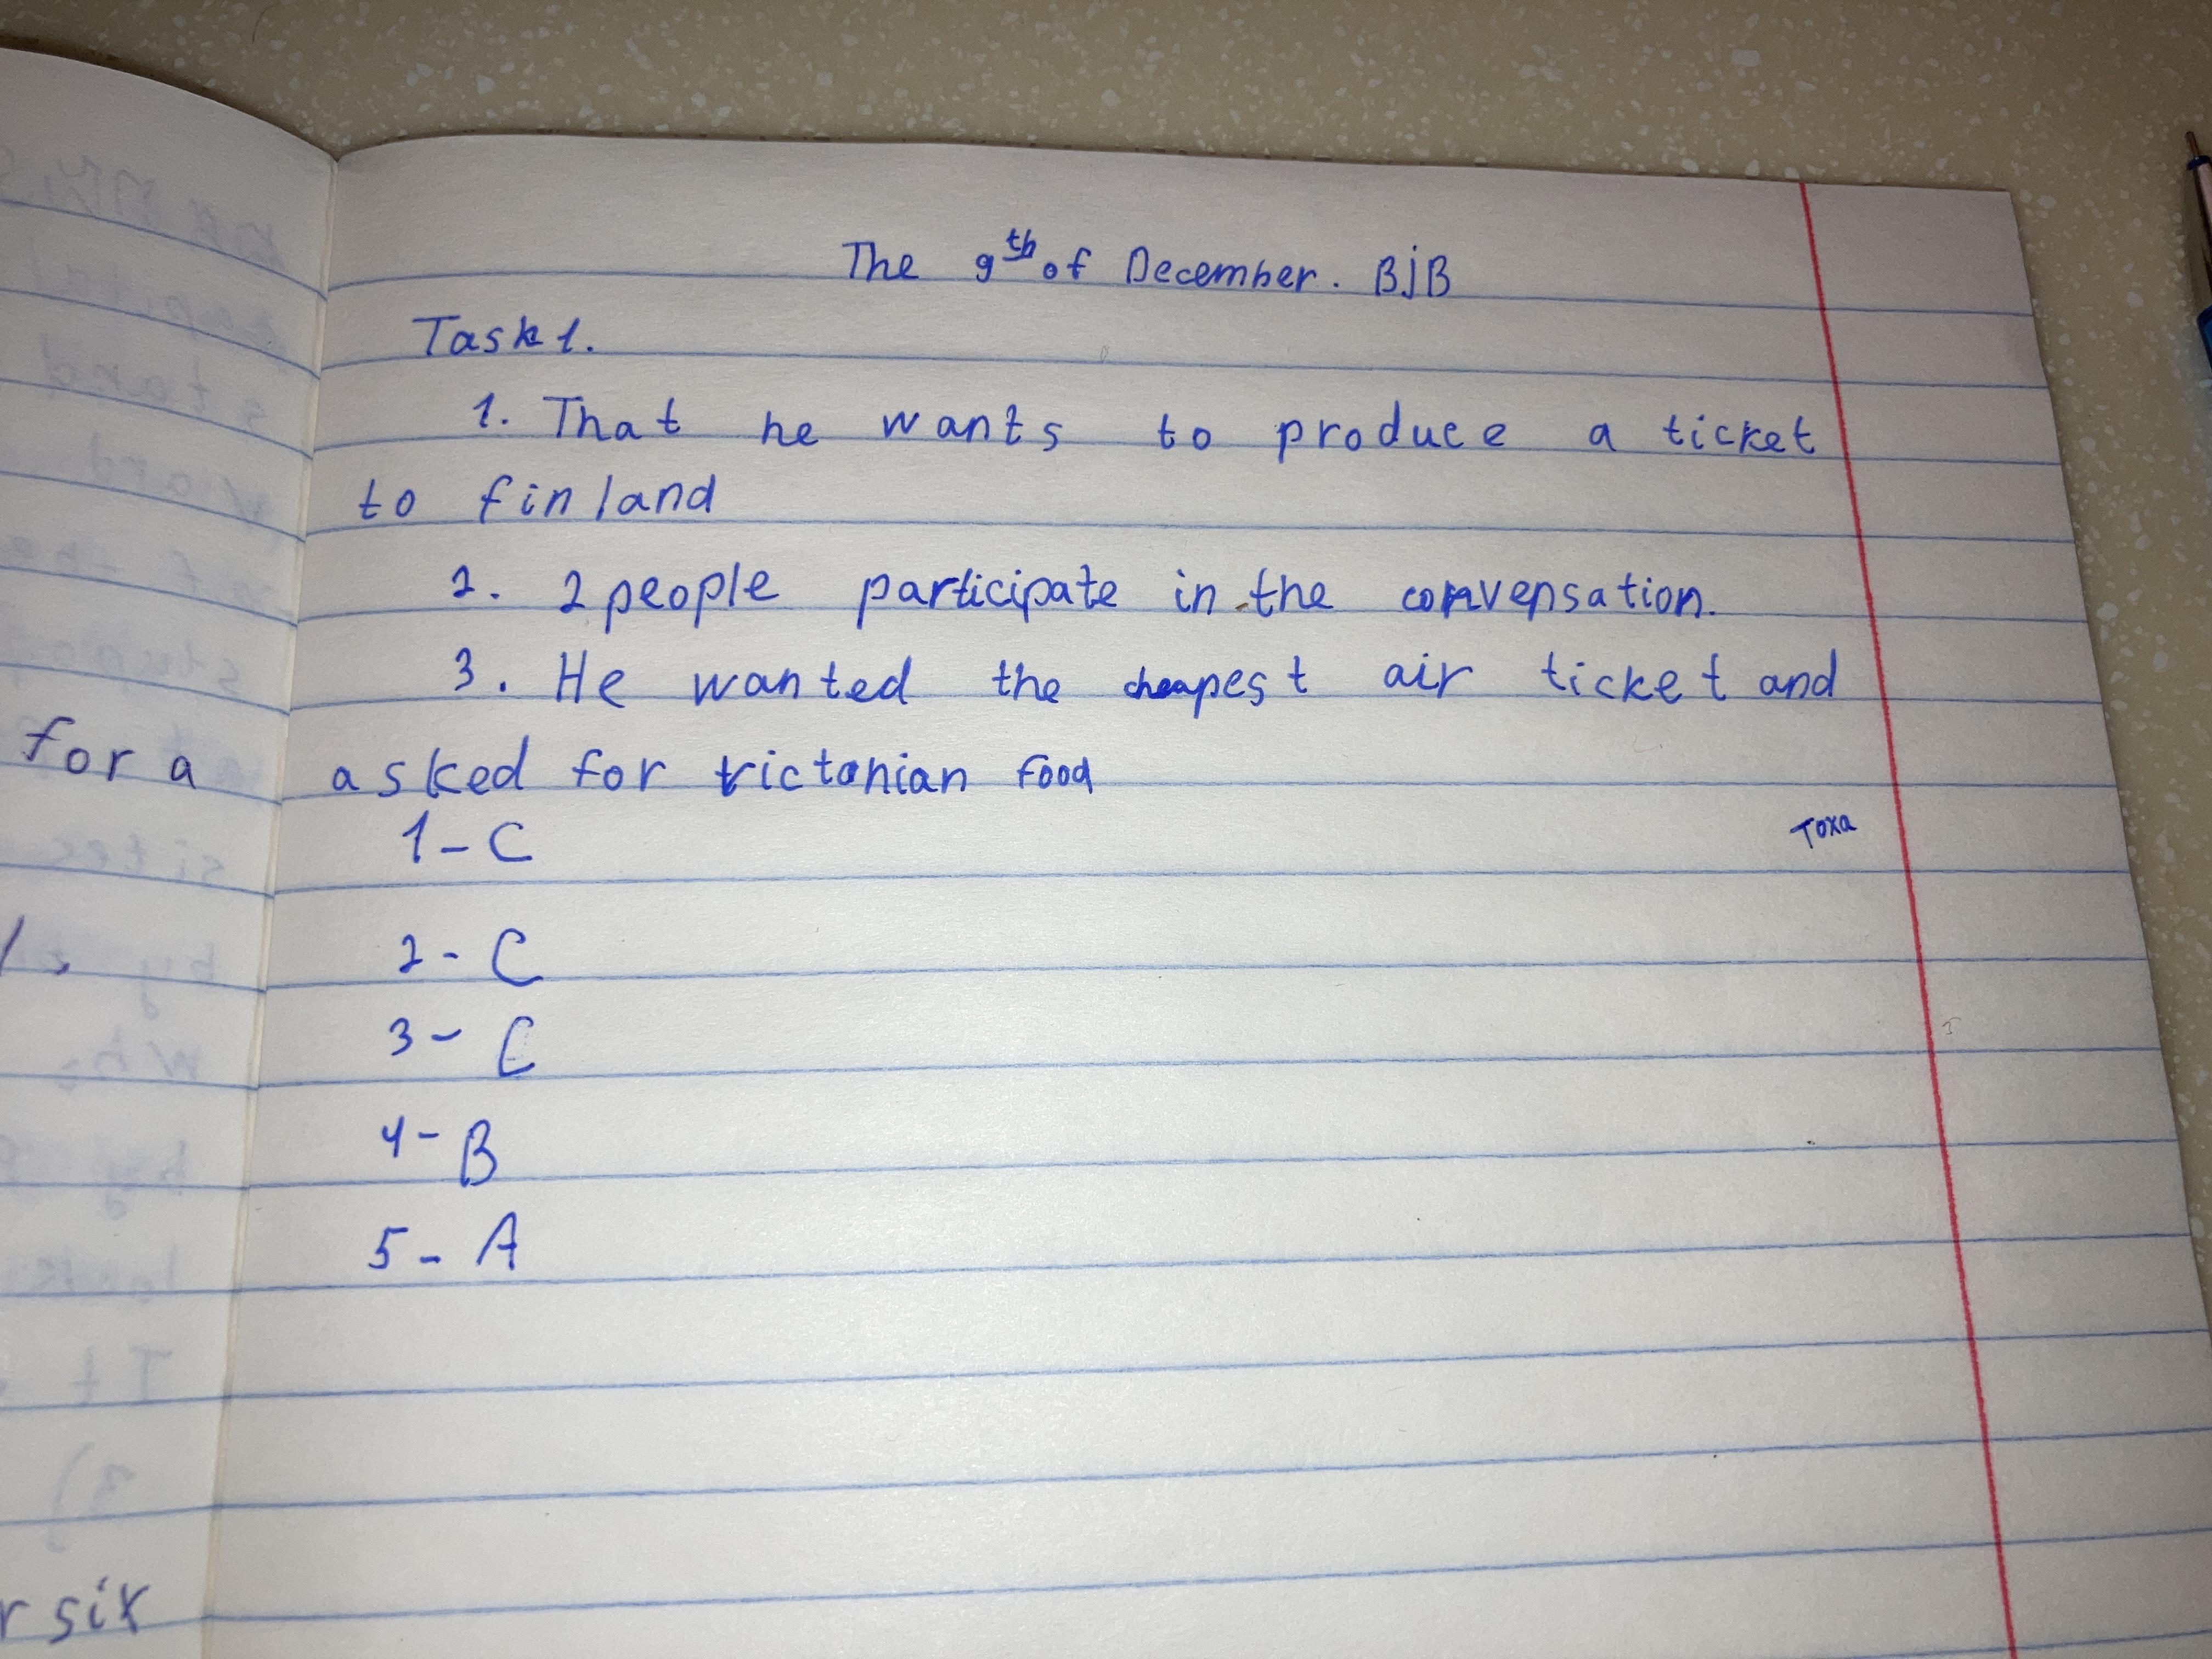 The 9th of December. BjB
Task 1.
1. That he wants to produce a ticket
to finland
2. 2 people participate in the convensation.
3. He wanted the cheapest air ticket and
asked for victonian food
1 - C
Toxa
2 - C
3 - C
4 - B
5 - A
for a
r six